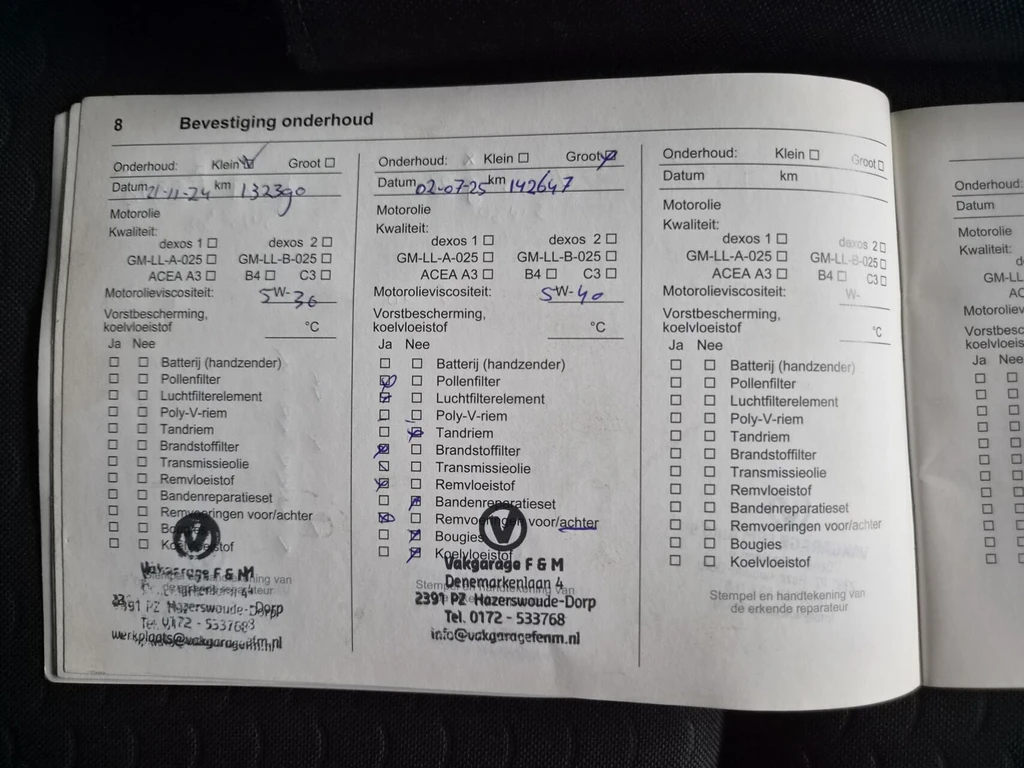 8 Bevestiging onderhoud
Onderhoud: Klein Groot
Datum 21-11-24 km 132390
Motorolie
Kwaliteit:
dexos 1 dexos 2
GM-LL-A-025 GM-LL-B-025
ACEA A3 B4 C3
Motorolieviscositeit: 5W-30
Vorstbescherming,
koelvloeistof °C
Ja Nee
Batterij (handzender)
Pollenfilter
Luchtfilterelement
Poly-V-riem
Tandriem
Brandstoffilter
Transmissieolie
Remvloeistof
Bandenreparatieset
Remvoeringen voor/achter
Bougies
Koelvloeistof
Vakgarage F & M
Stempel en handtekening van
de erkende reparateur
2391 PZ Hazerswoude-Dorp
Tel. 0172 - 533768
Onderhoud: Klein Groot
Datum 02-07-25 km 142647
Motorolie
Kwaliteit:
dexos 1 dexos 2
GM-LL-A-025 GM-LL-B-025
ACEA A3 B4 C3
Motorolieviscositeit: 5W-40
Vorstbescherming,
koelvloeistof °C
Ja Nee
Batterij (handzender)
Pollenfilter
Luchtfilterelement
Poly-V-riem
Tandriem
Brandstoffilter
Transmissieolie
Remvloeistof
Bandenreparatieset
Remvoeringen voor/achter
Bougies
Koelvloeistof
Vakgarage F & M
Stempel en handtekening van
Denemarkenlaan 4
2391 PZ Hazerswoude-Dorp
Tel. 0172 - 533768
info@vakgaragefenm.nl
Onderhoud: Klein Groot
Datum km
Motorolie
Kwaliteit:
dexos 1 dexos 2
GM-LL-A-025 GM-LL-B-025
ACEA A3 B4 C3
Motorolieviscositeit: W-
Vorstbescherming,
koelvloeistof °C
Ja Nee
Batterij (handzender)
Pollenfilter
Luchtfilterelement
Poly-V-riem
Tandriem
Brandstoffilter
Transmissieolie
Remvloeistof
Bandenreparatieset
Remvoeringen voor/achter
Bougies
Koelvloeistof
Stempel en handtekening van
de erkende reparateur
Onderhoud:
Datum
Motorolie
Kwaliteit:
Ja Nee